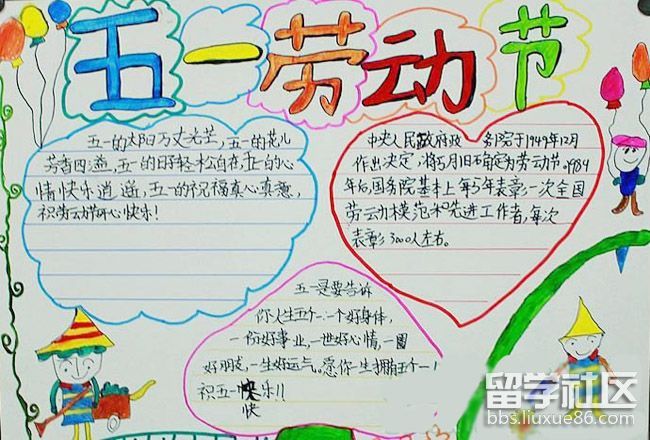 五一劳动节
五一的太阳万丈光芒,五一的花儿
芳香四溢,五一的日子轻松自在,五一的心
情快乐逍遥,五一的祝福真心真意,
祝劳动节开心快乐!
中央人民政府政务院于1949年12月
作出决定,将5月1日确定为劳动节。1989
年后国务院基本上每5年表彰一次全国
劳动模范和先进工作者,每次
表彰3000人左右。
五一是要告诉
你人生五个一:一个好身体,
一份好事业,一世好心情,一圈
好朋友,一生好运气。愿你一生拥有五个一!
祝五一快乐!!
快
留学社区
bbs.liuxue86.com